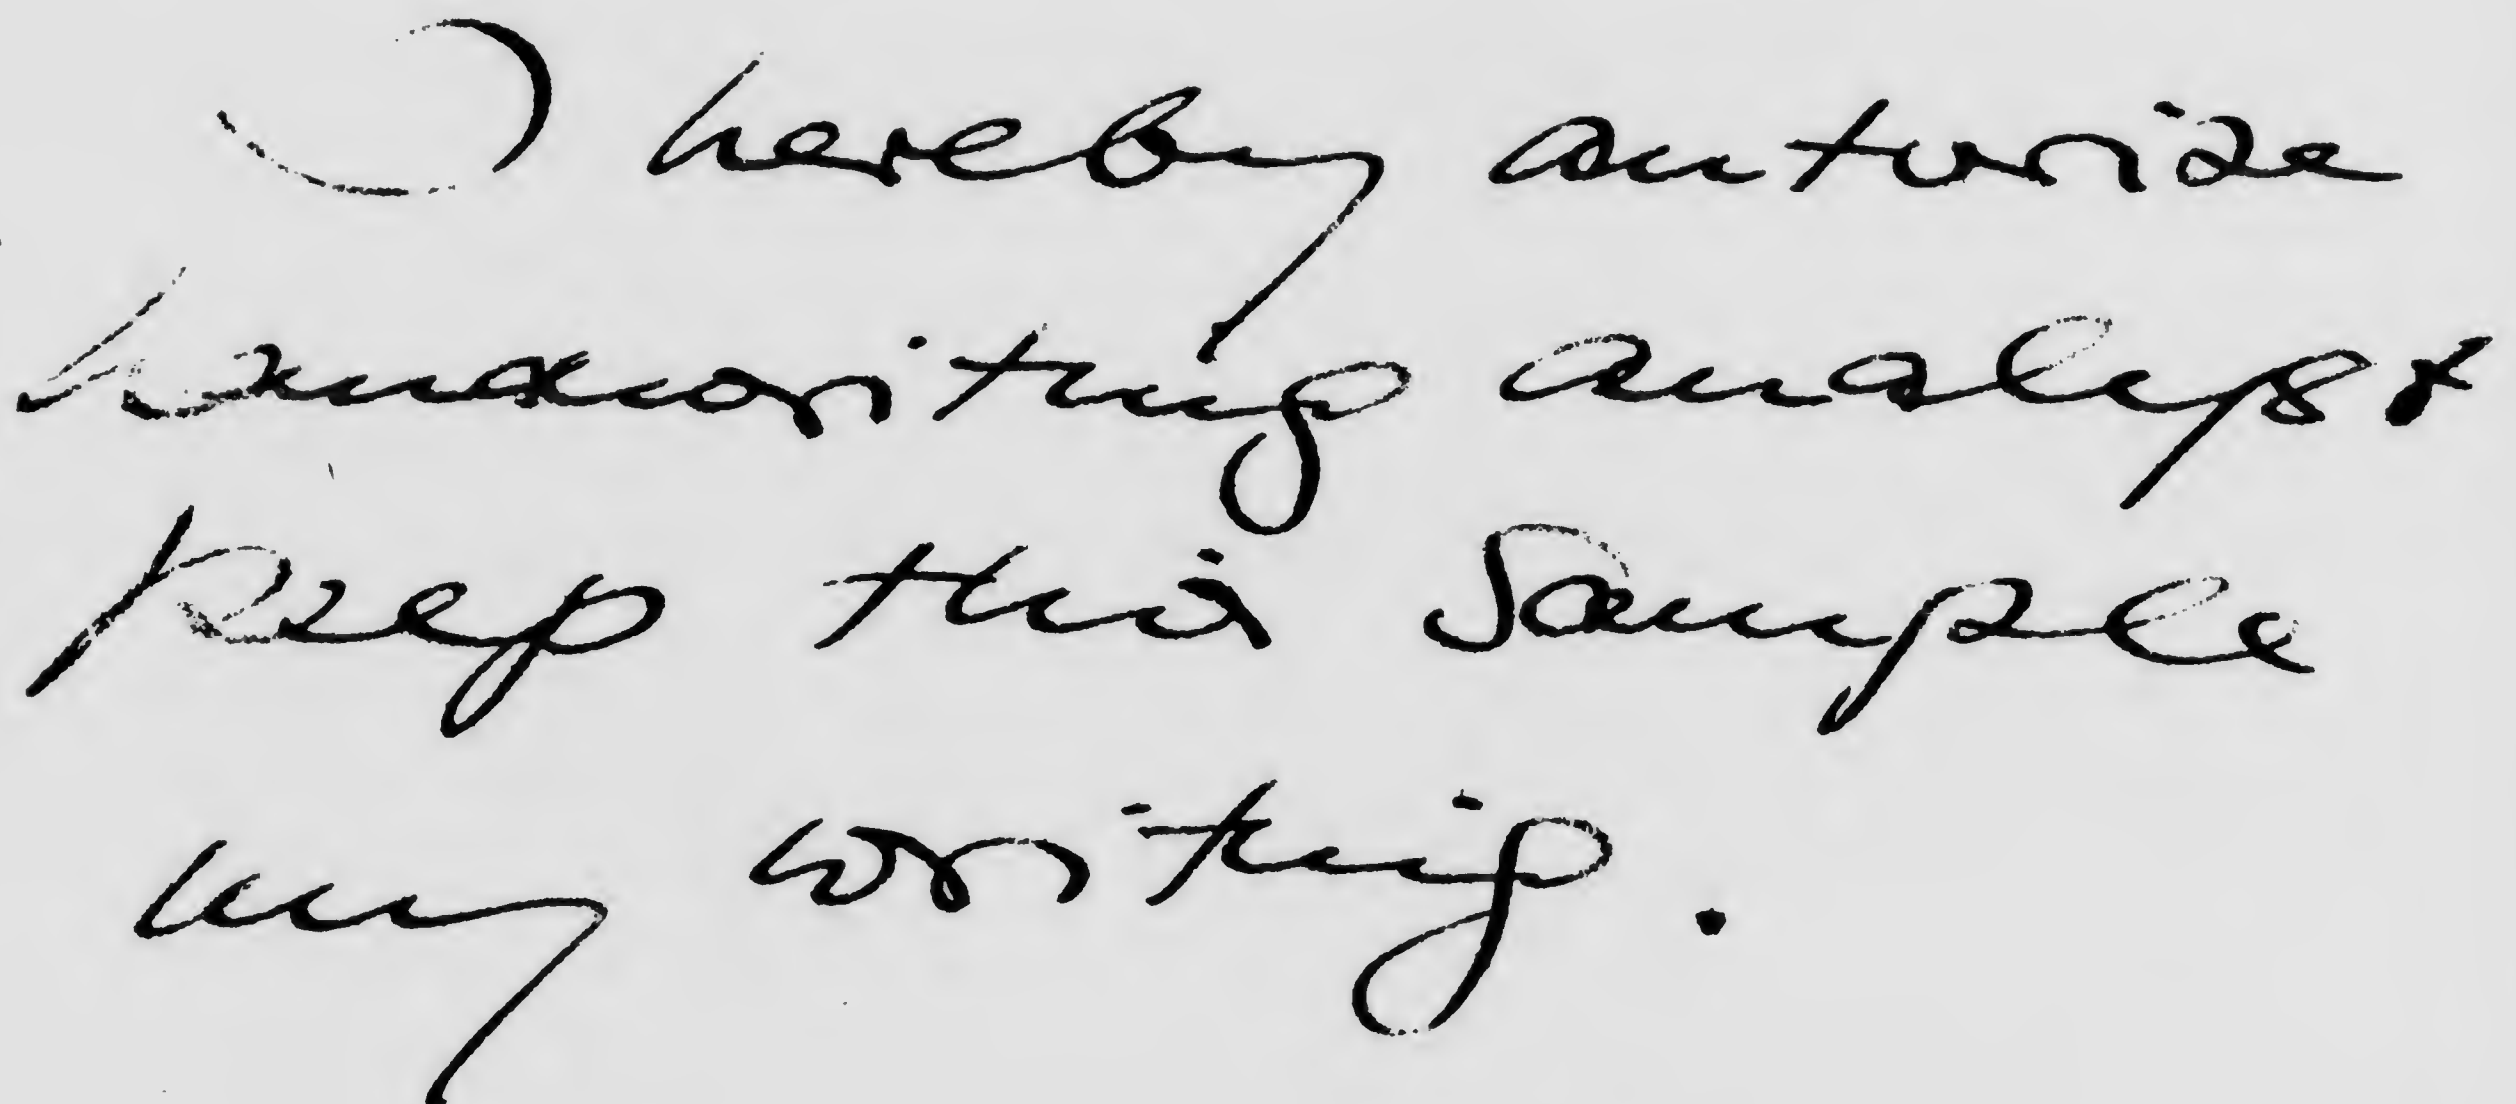 I hereby autorize
handwriting analyst
keep this sample
my writing.